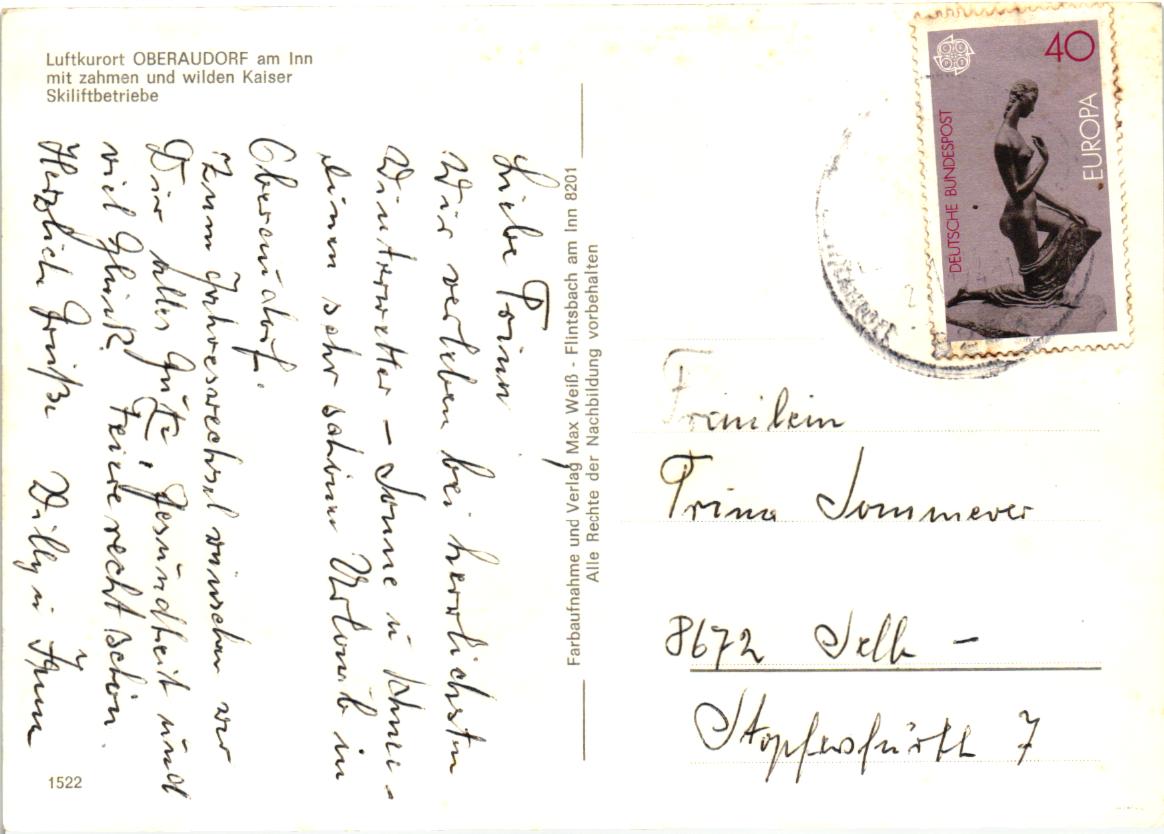 Luftkurort OBERAUDORF am Inn
mit zahmen und wilden Kaiser
Skiliftbetriebe
Liebe Trina
Wir verleben bei herrlichsten
Winterwetter – Sonne u Schnee -
einen sehr schönen Urlaub in
Oberaudorf.
Zum Jahreswechsel wünschen wir
Dir alles Gute, Gesundheit und
viel Glück. Feiere recht schön.
Herzliche Grüße Willy u
1522
Farbaufnahme und Verlag Max Weiß - Flintsbach am Inn 8201
Alle Rechte der Nachbildung vorbehalten
DEUTSCHE BUNDESPOST
40
EUROPA
Fräulein
Trina Sommerer
8672 Selb –
Stopfersfurth 7